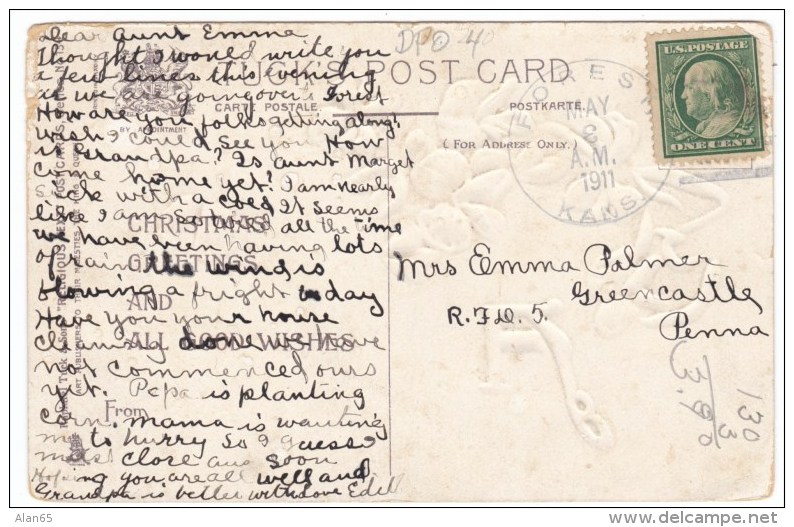 Dear Aunt Emma
Thought I would write you
a few lines this evening
as we are going over Forest
How are you folks getting along?
wish I could see you How
is Grandpa? Is aunt Marget
come home yet? I am nearly
sick with a cold It seems
like I am so tired all the time
we have been having lots
of rain the wind is
blowing a fright today
Have you your house
cleaning done we have
not commenced ours
yet. Papa is planting
corn. mama is wanting
me to hurry so I guess I
must close and soon
Hoping you are all well and
Grandpa is better with love Edell
CHRISTMAS
GREETINGS
AND
ALL GOOD WISHES
From
BY APPOINTMENT
DPO-4
TUCK'S POST CARD
CARTE POSTALE.
POSTKARTE.
(FOR ADDRESS ONLY.)
FOREST
MAY
8
A.M.
1911
KANS.
U.S. POSTAGE
ONE CENT
Mrs Emma Palmer
Greencastle
R.F.D. 5.
Penna
130
Alan65
http://www.delcampe.net